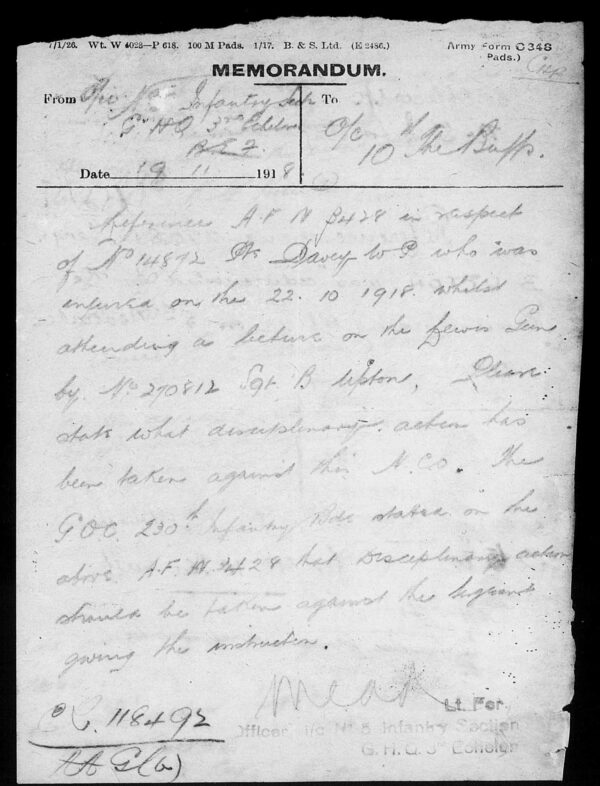 7/1/26. Wt. W 4028—P 618. 100 M Pads. 1/17. B. & S. Ltd. (E 2486.)
Army Form C 348
Pads.)
MEMORANDUM.
From O/i/c No 5 Infantry Sect
G H Q 3rd Echelon
B.E.F.
To
O/C
10th The Buffs.
Date 19 11 1918
Reference A.F. W 3428 in respect
of No 14892 Pte Davey W P who was
injured on the 22. 10 1918 whilst
attending a lecture on the Lewis Gun
by No 270812 Sgt B Upton, Please
state what disciplinary action has
been taken against this N.C.O. The
G O C 230th Infantry Bde stated on the
above A.F. W. 3428 that disciplinary action
should be taken against the Sergeant
giving the instruction.
Lt. For
Officer i/c No 5 Infantry Section
G.H.Q. 3rd Echelon
118492